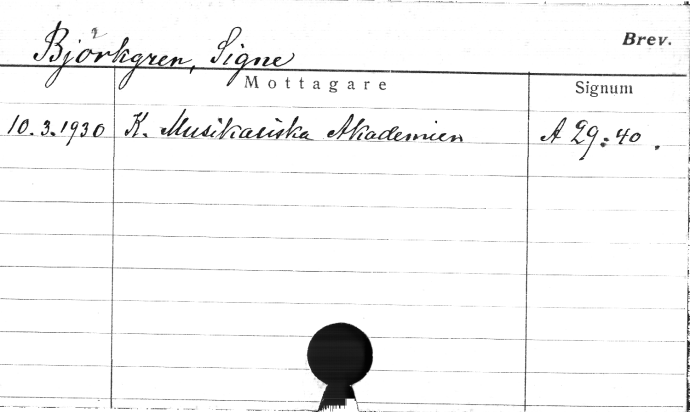 Björkgren, Signe
Brev.
Mottagare
Signum
10.3.1930 K. Musikaliska Akademien A 29:40.